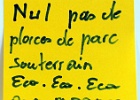 Nul pas de
places de parc
souterrain
Eco. Eco. Eco